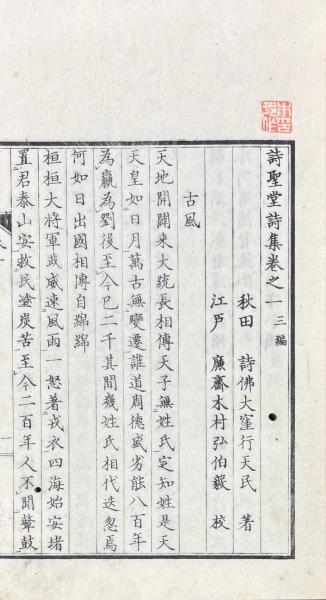 詩聖堂詩集卷之一 三編
秋田 詩佛大窪行天民 著
江戶 廉齋木村弘伯毅 校
古風
天地開闢來大統長相傳天子無姓氏定知姓是天
天皇如日月萬古無變遷誰道周德盛劣能八百年
為嬴為劉後至今已二千其間幾姓氏相代迭忽焉
何如日出國相傳自綿綿
桓桓大將軍武威速風雨一怒著戎衣四海始安堵
置君泰山安救民塗炭苦至今二百年人不聞鼙鼓